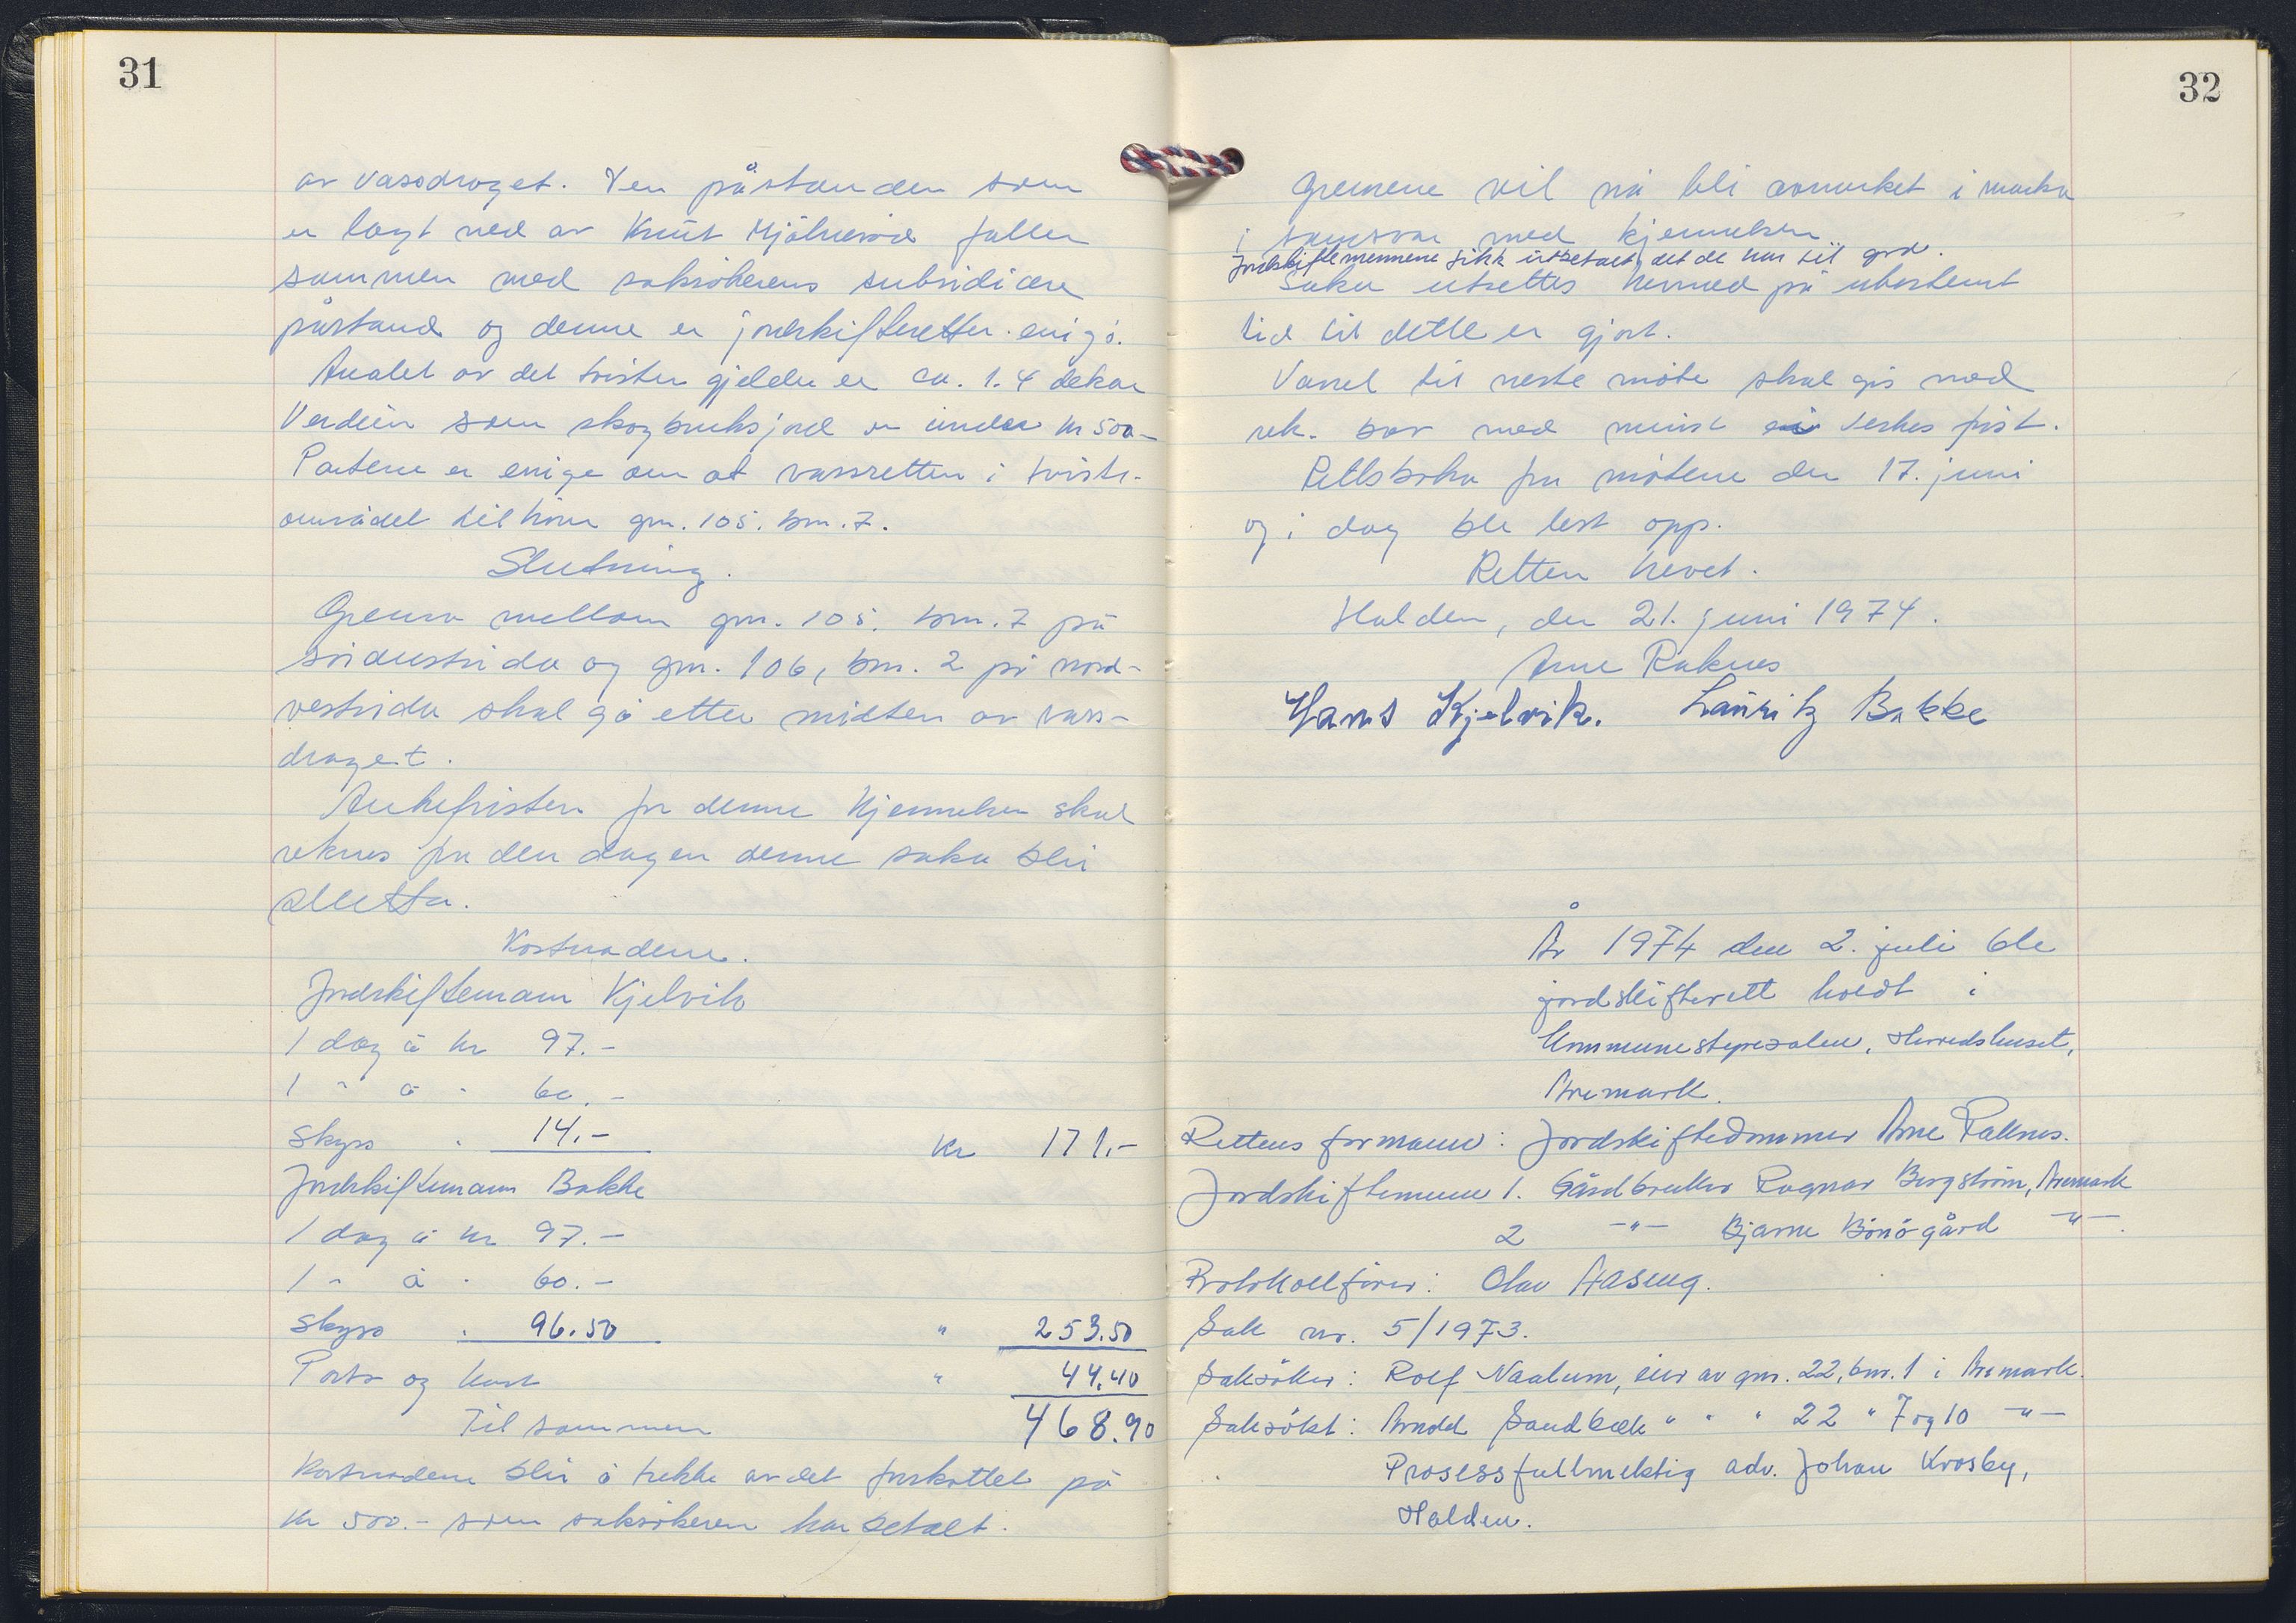 31
av vassdraget. Den påstanden som
er lagt ned av Knut Mjölnerød faller
sammen med saksökerens subsidiære
påstand og denne er jordskifteretten enig i.
Arealet av det tvisten gjelder er ca. 1.4 dekar
Verdien som skogbruksjord er under kr 500.-
Partene er enige om at vassretten i tviste-
området tilhörer gnr. 105. bnr. 7.
Slutning.
Grensa mellom gnr. 105. bnr. 7 på
sörøstsida og gnr. 106, bnr. 2 på nord-
vestsida skal gå etter midten av vass-
draget.
Ankefristen for denne kjennelsen skal
reknes fra den dagen denne saka blir
slutta.
Kostnadene.
Jordskiftemann Kjelvik
1 dag à kr 97.-
1 " à " 60.-
Skyss " 14.- kr 171.-
Jordskiftemann Bakke
1 dag à kr 97.-
1 " à " 60.-
Skyss " 96.50 " 253.50
Porto og " 44.40
Til sammen 468.90
Kostnadene blir å trekke av det forskottet på
kr 500.- som saksökeren har betalt.
32
Grensene vil nå bli avmerket i marka
i samsvar med kjennelsen.
Jordskiftemennene fikk utbetalt det de har til gode.
Saka utsettes hermed på ubestemt
tid til dette er gjort.
Varsel til neste möte skal gis med
rek. brev med minst ei vekes frist.
Rettsboka fra mötene den 17. juni
og i dag ble lest opp.
Retten hevet.
Halden, den 21. juni 1974.
Arne Raknes
Hans Kjelvik. Lauritz Bakke
År 1974 den 2. juli ble
jordskifterett holdt i
Kommunestyresalen, Herredshuset,
Aremark.
Rettens formann: Jordskiftedommer Arne Raknes.
Jordskiftemenn 1. Gårdbruker Ragnar Bergström, Aremark
2 -"- Bjarne Bönögård -"-.
Protokollförer: Olav Haseng.
Sak nr. 5/1973.
Saksöker: Rolf Naalum, eier av gnr. 22, bnr. 1 i Aremark.
Saksökt: Arnold Sandbæk " " " 22 " 7 og 10 -"-
Prosessfullmektig adv. Johan Krosby,
Halden.